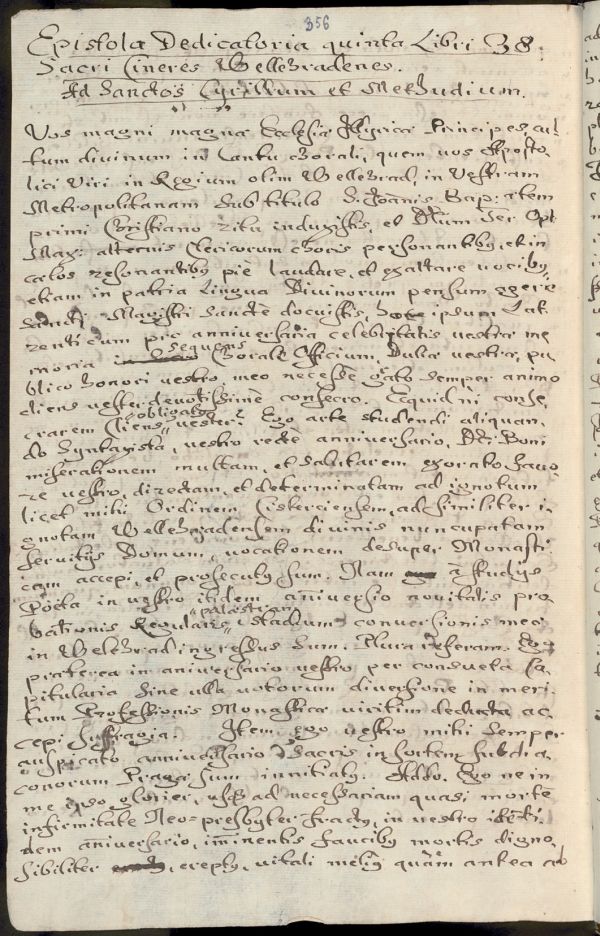 356
Epistola Dedicatoria quinta Libri 38.
Sacri Cineres Wellehradenes.
Ad Sanctos Cyrillum et Methudium.
Vos magni magnæ Ecclesiæ Illyricæ Principes, cul-
tum divinum in Cantu Chorali, quem vos Aposto-
lici Viri in Regium olim Wellehrad, in Vestram
Metropolitanam sub titulo S. Joānis Bap: ætem
primi Christiano ritu induxistis, et Deum ter Opt:
Max: alternis Clericorum choris personantibꝰ, et in
cælos resonantibꝰ piè laudare, et exaltare vocibꝰ,
etiam in patria Lingua Divinorum pensum agere
Sancti Magistri Sanctè docuistis, ipsum Lat-
renti cum pro anniversaria celebritatis vestræ me-
moria sequens Chorale Officium, Duliæ vestræ, pu-
blico honori vestro, meo necesse grato semper animo
cliens vester devotissimè consecro. Equid ni conse-
crarem Cliens obligatꝰ vester? Ego arte studendi aliquan-
do Syntaxista, vestro rectè anniversario, Dei Boni
miserationem multam, et salutarem exorato favo-
re vestro, directam, et determinatam ad ignotum
licet mihi Ordinem Cisterciensem, ad similiter i-
gnotam Wellehradensem divinis nuncupatam
servitijs Domum, vocationem desuper Monasti-
cam accepi, et prosecutꝰ sum. Nam à studijs
Poëta in vestro itidem aniversio novitatis pro-
bationis Regularis palæstram stadium conversionis meæ
in Welehrad ingressus sum. Plura referam. Ego
præterea in aniversario vestro per consueta Ca-
pitularia sine ulla votorum diversione in meri-
tum Professionis Monasticæ viritim deducta ac-
cepi suffragia. Item ego vestro mihi semper
auspicato anniversario Sacris in sortem subdia-
conorum Pragæ sum initiatꝰ. Addo. Ego ne in
me ipso glorier, usq̃ ad necessariam quasi morte
infirmitate Neo-presbyter fractꝰ, in vestro identi-
dem aniversario, im̄inentis faucibꝰ mortis digno-
sibiliter ereptꝰ, vitali meliꝰ quàm antea ab